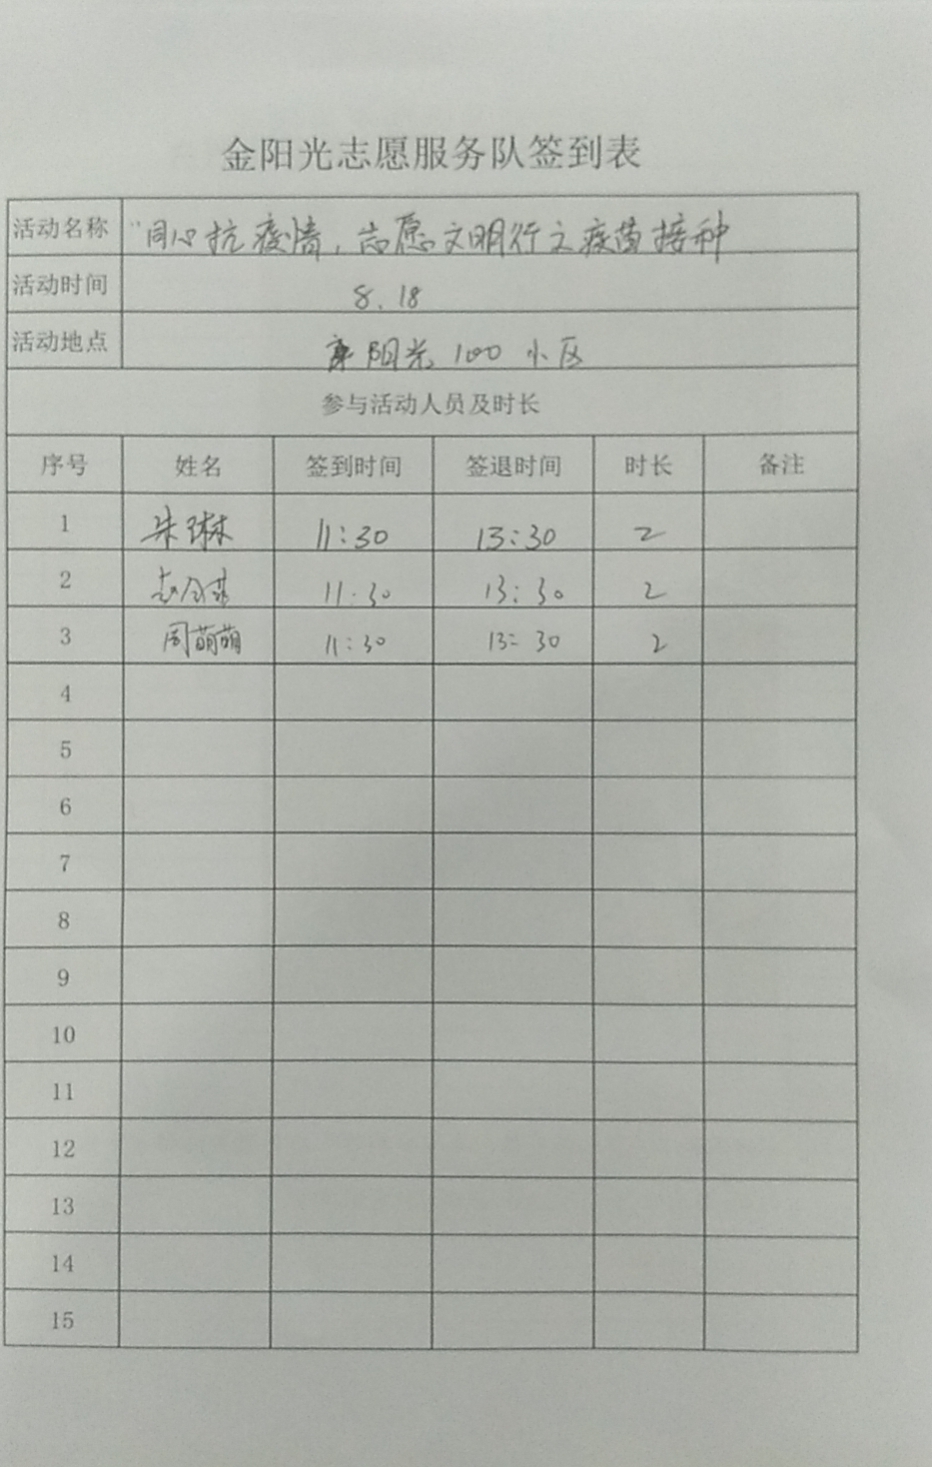 金阳光志愿服务队签到表
活动名称 "同心抗疫情,志愿文明行之疫苗接种
活动时间 8.18
活动地点 阳光100小区
参与活动人员及时长
序号 姓名 签到时间 签退时间 时长 备注
1 朱琳 11:30 13:30 2
2 11:30 13:30 2
3 周萌萌 11:30 13:30 2
4
5
6
7
8
9
10
11
12
13
14
15